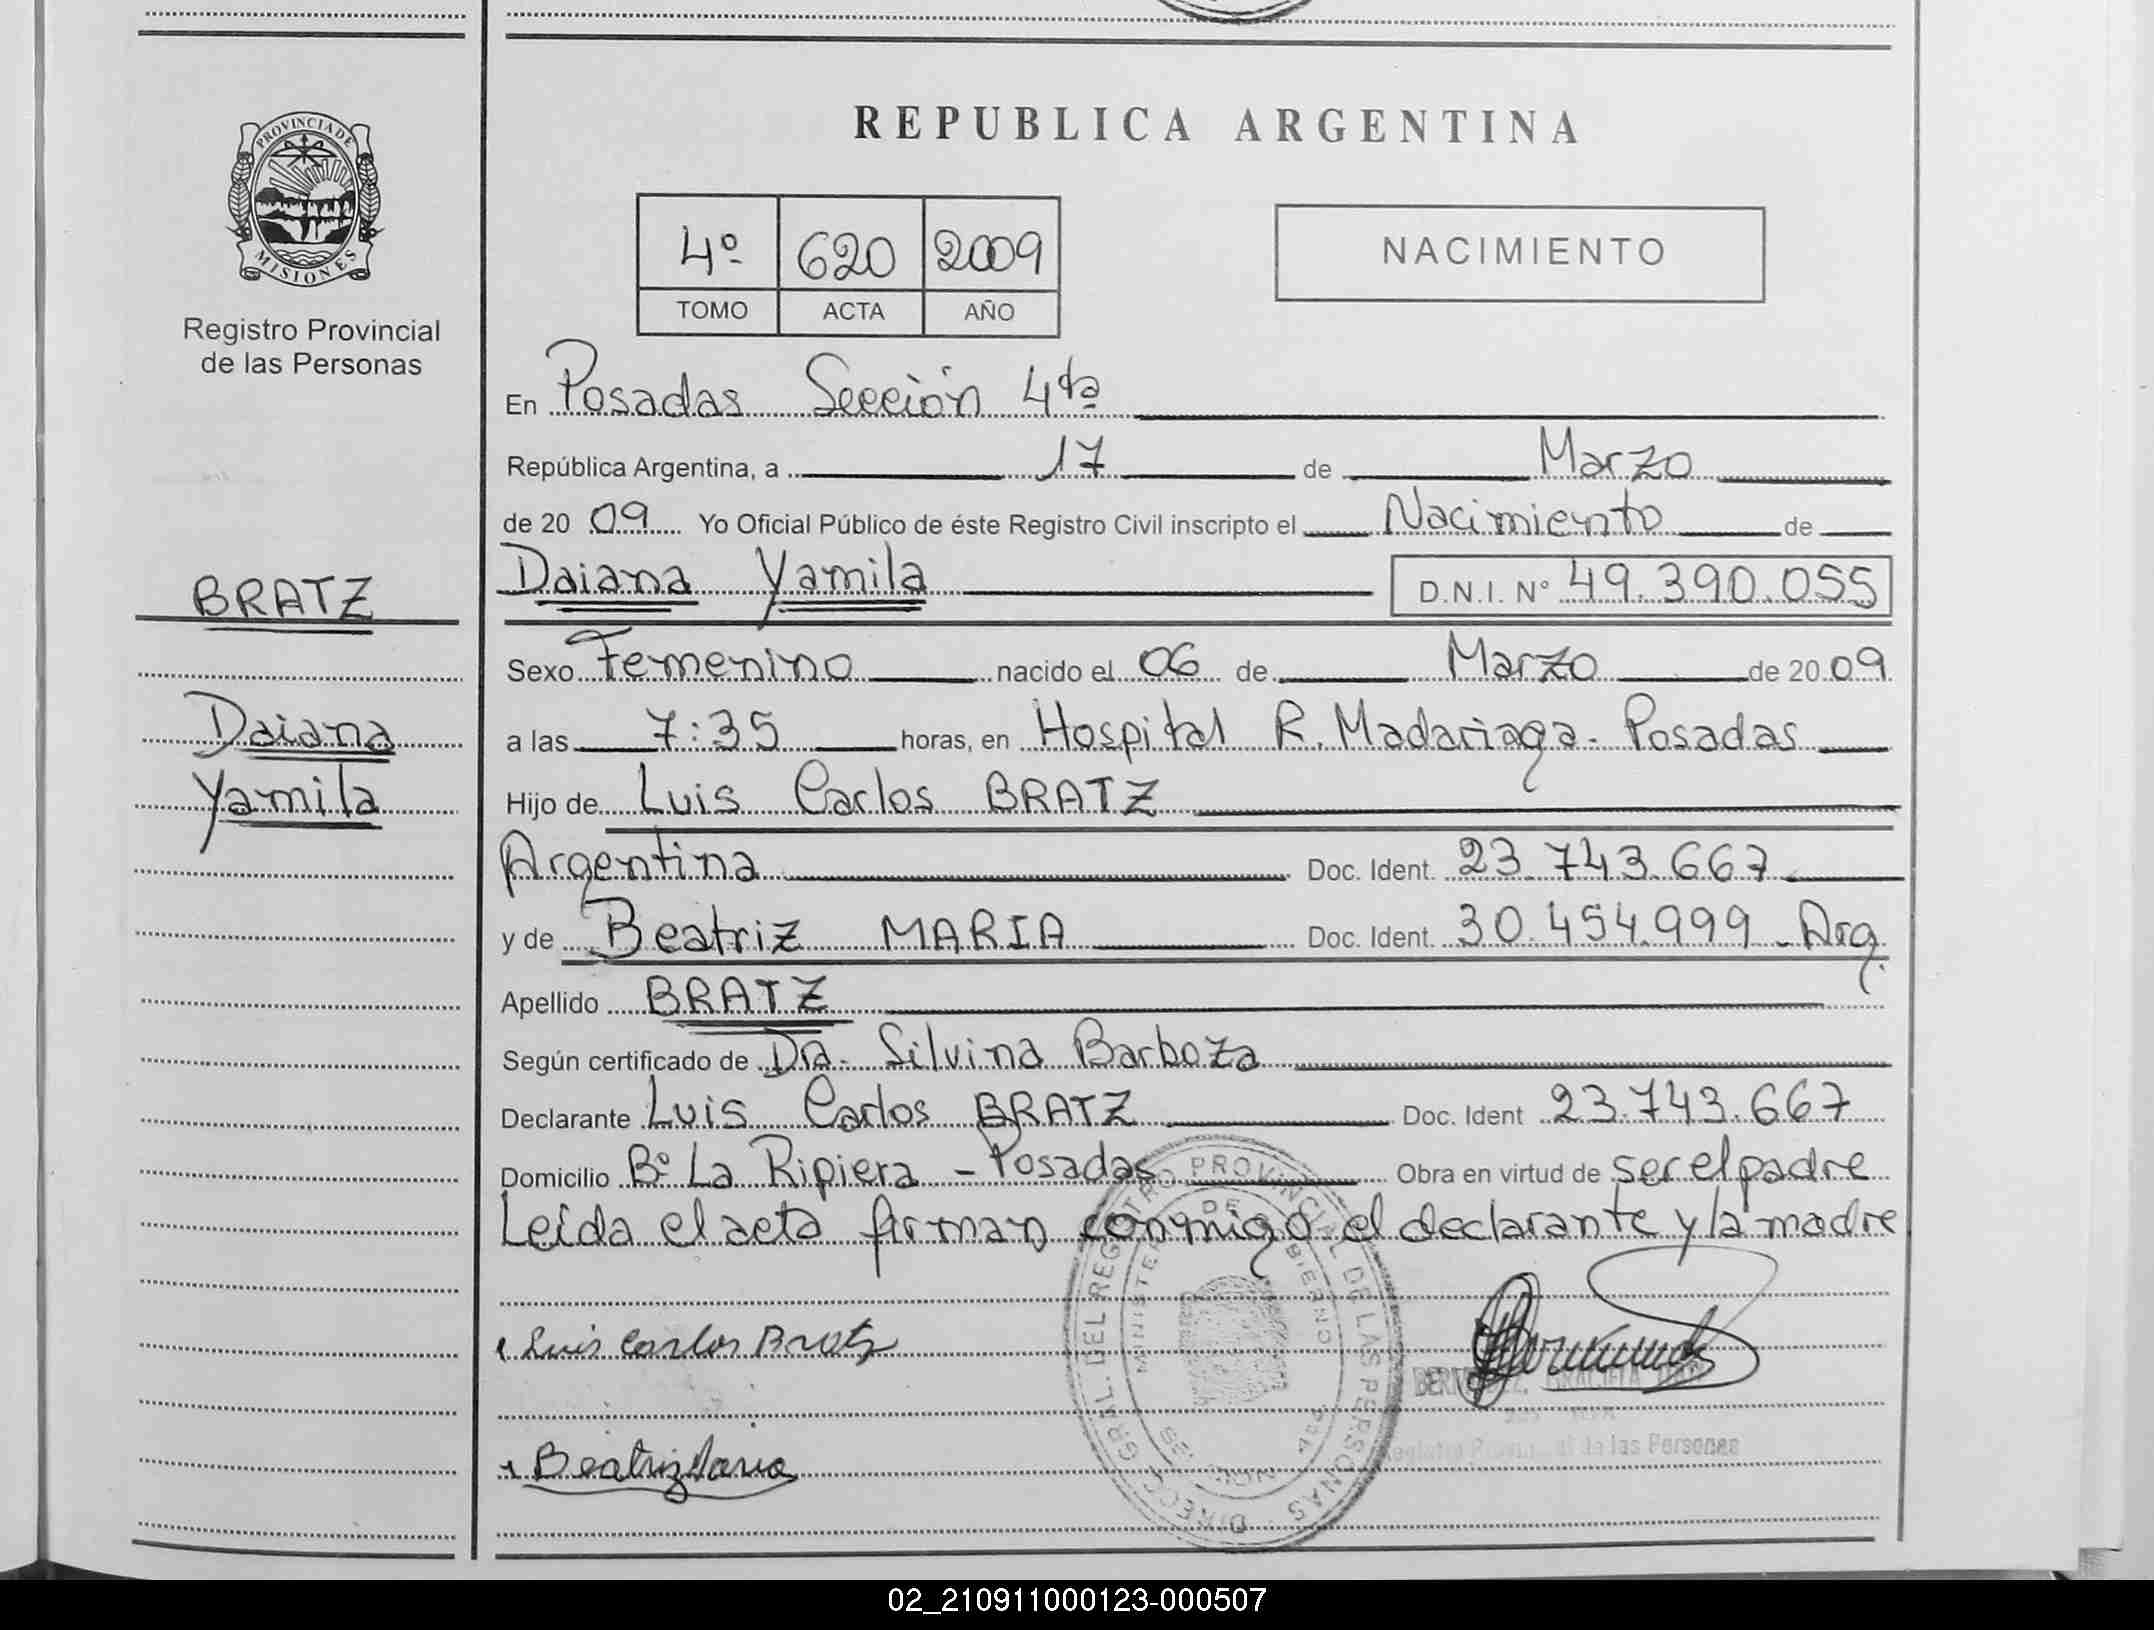 PROVINCIA DE
MISIONES
Registro Provincial
de las Personas
BRATZ
Daiana
Yamila
REPUBLICA ARGENTINA
4º 620 2009
TOMO ACTA AÑO
NACIMIENTO
En Posadas Sección 4ta
República Argentina, a 17 de Marzo
de 20 09 Yo Oficial Público de éste Registro Civil inscripto el Nacimiento de
Daiana Yamila D.N.I. Nº 49.390.055
Sexo Femenino nacido el 06 de Marzo de 20 09
a las 7:35 horas, en Hospital R. Madariaga - Posadas
Hijo de Luis Carlos BRATZ
Argentina Doc. Ident. 23.743.667
y de Beatriz MARIA Doc. Ident. 30.454.999 - Arg.
Apellido BRATZ
Según certificado de Dra. Silvina Barboza
Declarante Luis Carlos BRATZ Doc. Ident 23.743.667
Domicilio Bº La Ripiera - Posadas Obra en virtud de ser el padre
Leída el acta firman conmigo el declarante y la madre
Luis Carlos Bratz
Beatriz Maria
DIRECC. GRAL. DEL REGISTRO PROVINCIAL DE LAS PERSONAS
GRACIELA
de las Personas
02_210911000123-000507